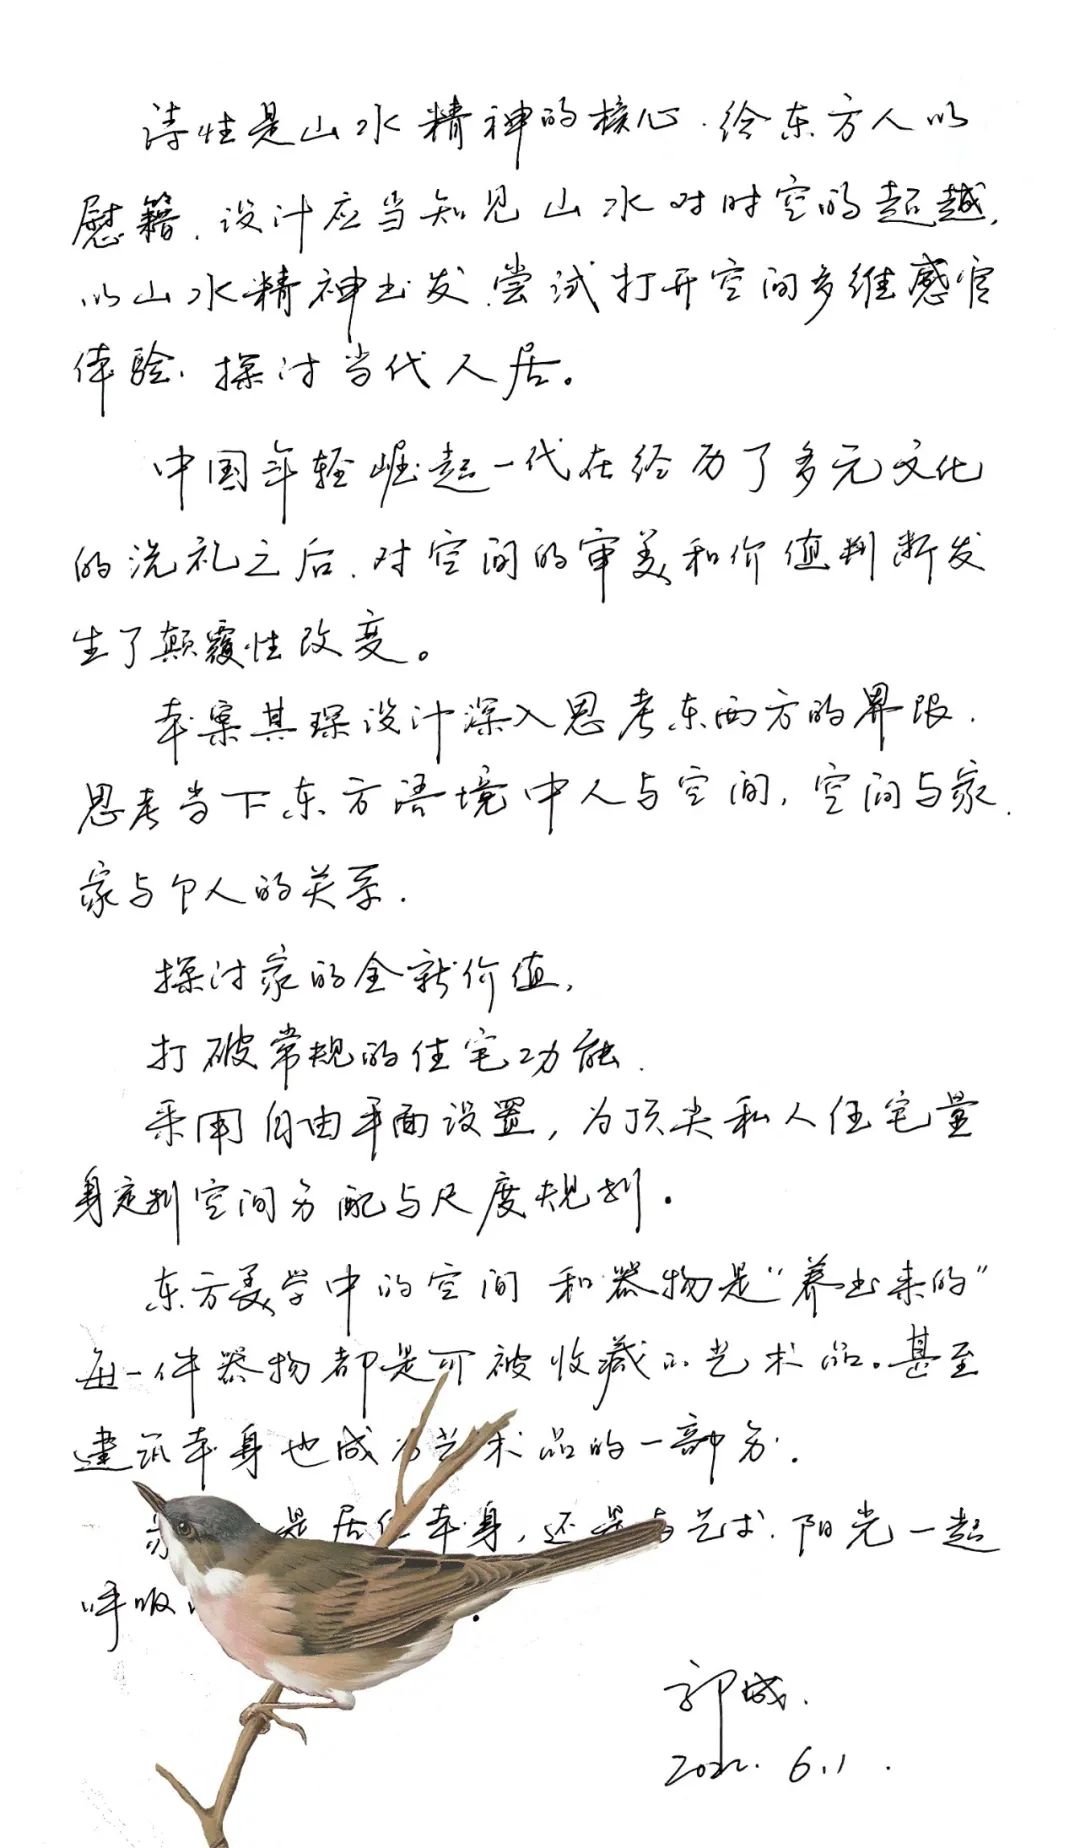 诗性是山水精神的核心.给东方人以
慰籍.设计应当知见山水对时空的超越,
以山水精神出发.尝试打开空间多维感官
体验.探讨当代人居。
中国年轻崛起一代在经历了多元文化
的洗礼之后.对空间的审美和价值判断发
生了颠覆性改变。
本案其琛设计深入思考东西方的界限.
思考当下东方语境中人与空间,空间与家.
家与个人的关系.
探讨家的全新价值,
打破常规的住宅功能.
采用自由平面设置,为顶尖私人住宅量
身定制空间分配与尺度规划。
东方美学中的空间和器物是“养出来的”
每一件器物都是可被收藏的艺术品。甚至
建筑本身也成为艺术品的一部分.
家 是居住本身,还是与艺术.阳光一起
呼吸
郭成.
2022.6.1.